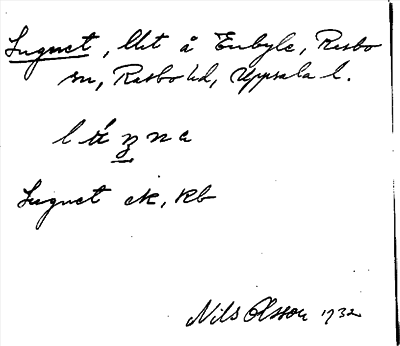 Lugnet, lht å Enbyle, Rasbo
sn, Rasbo hd, Uppsala l.
Lugnet ek, kb
Nils Olsson 1932